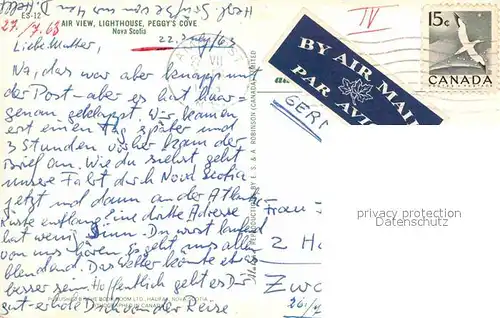 ES-12
AIR VIEW, LIGHTHOUSE, PEGGY'S COVE
Nova Scotia
27.7.63
22. July/63
Liebe Mutter,
Na, das war aber knapp mit
der Post - aber es hat haar-
genau geklappt. Wir kamen
erst einen Tag später und
3 Stunden vorher kam der
Brief an. Wie du siehst geht
unsere Fahrt durch Nova Scotia
jetzt und dann an der Atlantic
Küste entlang. Eine dritte Adresse
hat wenig Sinn. Du wirst laufend
von uns hören. Es geht uns allen
blendend. Das Wetter könnte etwas
besser sein. Hoffentlich geht es Dir
gut - erhole Dich von der Reise
PUBLISHED BY THE BOOK ROOM LTD., HALIFAX, NOVA SCOTIA
IN CANADA
REPRODUCED BY E. S. & A. ROBINSON (CANADA) LIMITED
TV
BY AIR MAIL
PAR AVION
15c
CANADA
POSTES POSTAGE
GER
Frau
2 H
Zw
privacy protection
watermark